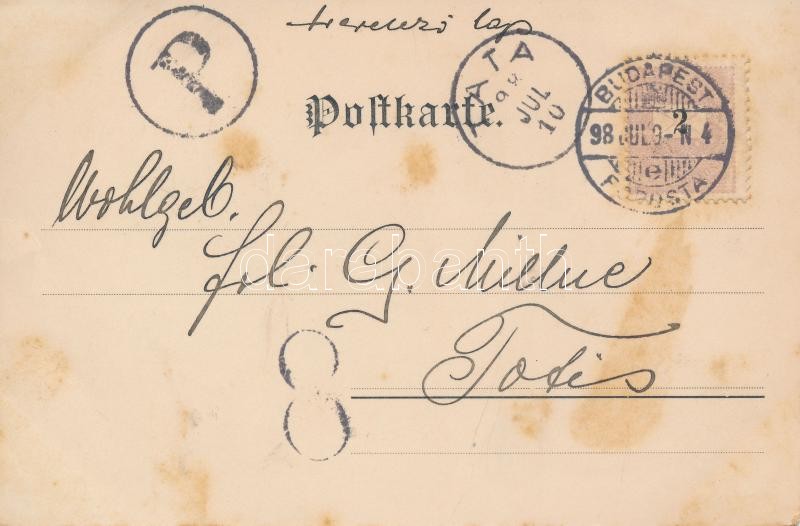 P
levelező lap
TATA
98
JUL
10
Postkarte.
BUDAPEST
98 JUL 9-N 4
e
FŐPOSTA
2
Wohlgeb.
Frl. G. Milline
darabanth
Totis
8